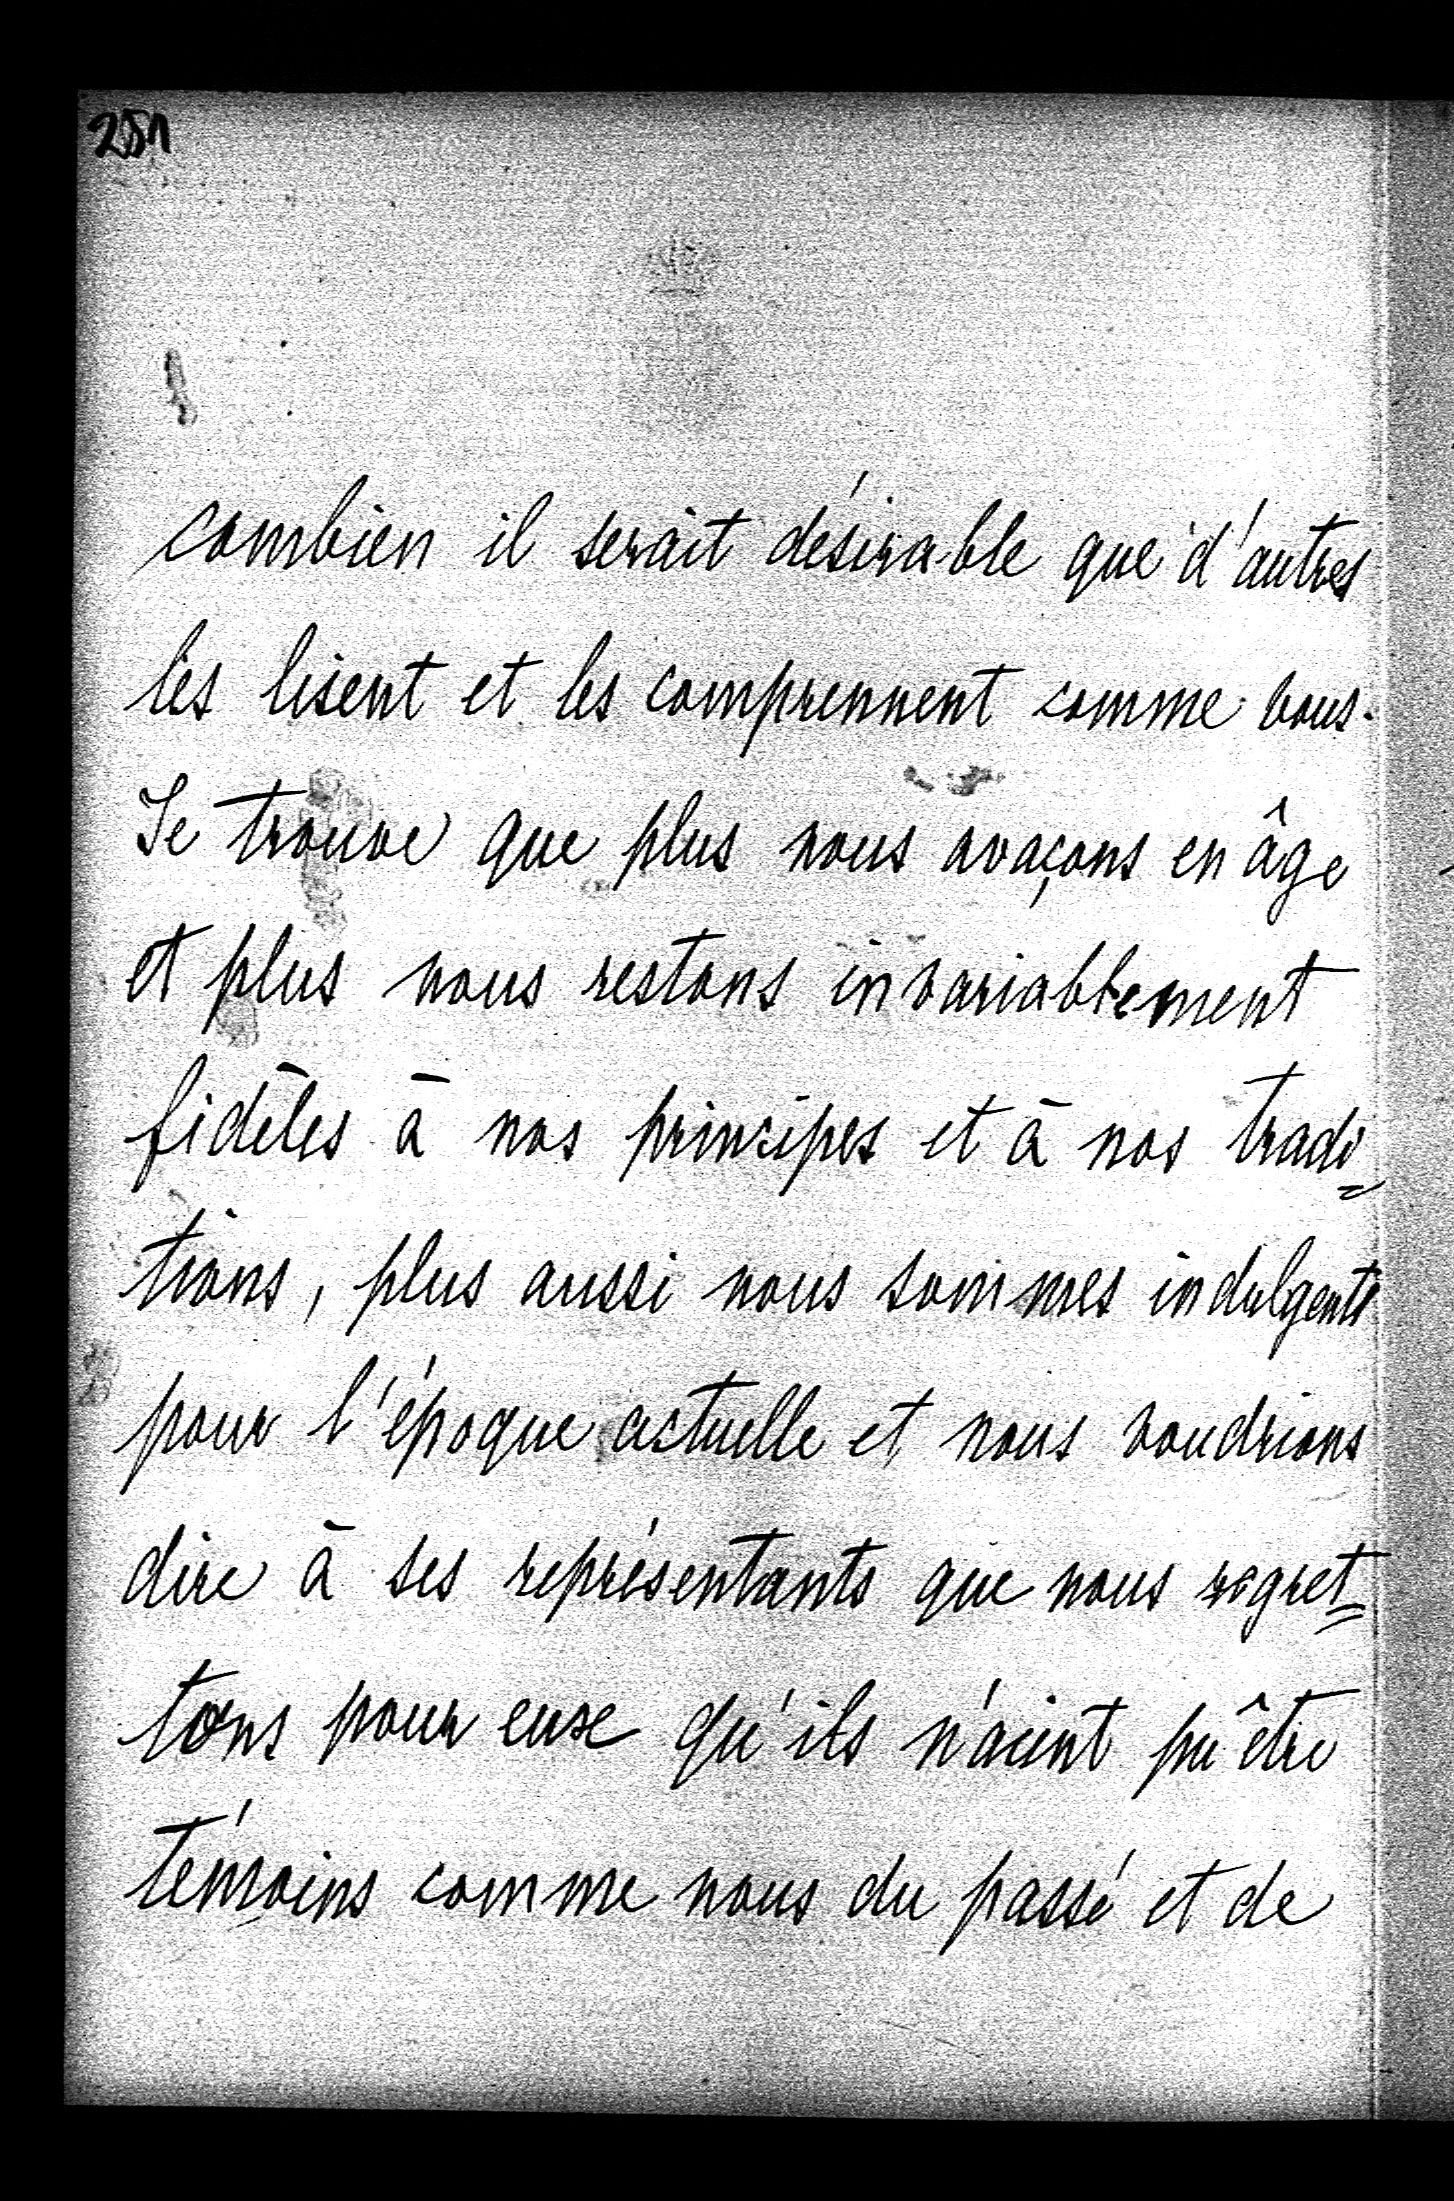 251
combien il serait désirable que d'autres
les lisent et les comprennent comme vous.
Je trouve que plus nous avaçons en âge
et plus nous restons invariablement
fidèles à nos principes et à nos tradi=
tions, plus aussi nous sommes indulgents
pour l'époque actuelle et nous voudrions
dire à ses représentants que nous regret=
tons pour eux qu'ils n'aient pu être
témoins comme nous du passé et de